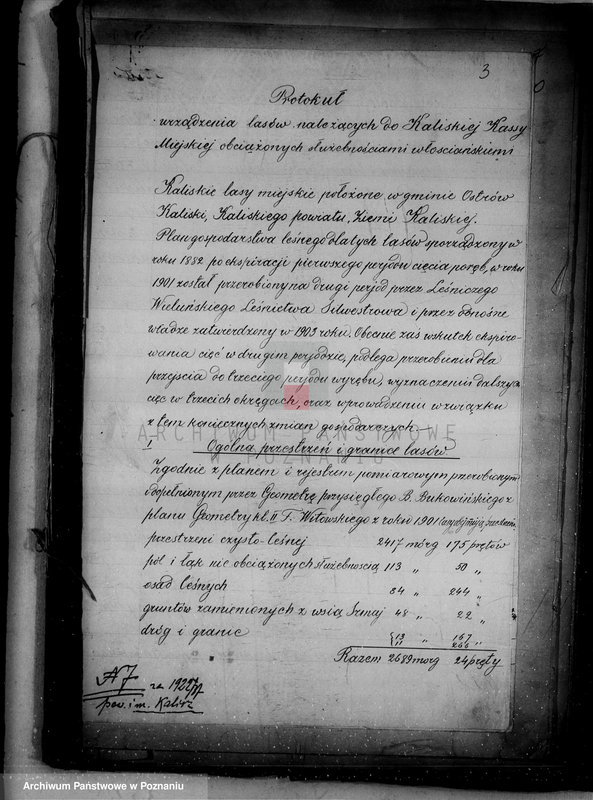 3
Protokuł
urządzenia lasów należących do Kaliskiej Kassy
Miejskiej obciążonych służebnościami włościańskiemi
Kaliskie lasy miejskie położone w gminie Ostrów
Kaliski, Kaliskiego powiatu, Ziemi Kaliskiej.
Plan gospodarstwa leśnego dla tych lasów sporządzony w
roku 1882 po ekspiracji pierwszego perjodu cięcia poręb, w roku
1901 został przerobiony na drugi perjod przez Leśniczego
Wieluńskiego Leśnictwa Silwestrowa i przez odnośne
władze zatwierdzony w 1903 roku. Obecnie zaś wskutek ekspiro-
wania cięć w drugim perjodzie, podlega przerobieniu dla
przejścia do trzeciego perjodu wyrębu, wyznaczeniu dalszych
cięć w trzecich okręgach, oraz wprowadzeniu w związku
z tem koniecznych zmian gospodarczych.
I
Ogólna przestrzeń i granice lasów
Zgodnie z planem i rejestrem pomiarowym przerobionym
i dopełnionym przez Geometrę przysięgłego B. Bukowińskiego z
planu Geometry kl. II F. Witowskiego z roku 1901
przestrzeni czysto-leśnej 2417 mórg 175 prętów
pól i łąk nie obciążonych służebnością 113 „ 50 „
osad leśnych 84 „ 244 „
gruntów zamienionych z wsią Szmaj 48 „ 22 „
dróg i granic { 13 „ 167 „
11 266
Razem 2689 morg 24 pręty
A7
za 1922
pow. i m. Kalisz
ARCHIWUM PAŃSTWOWE
W POZNANIU
Archiwum Państwowe w Poznaniu